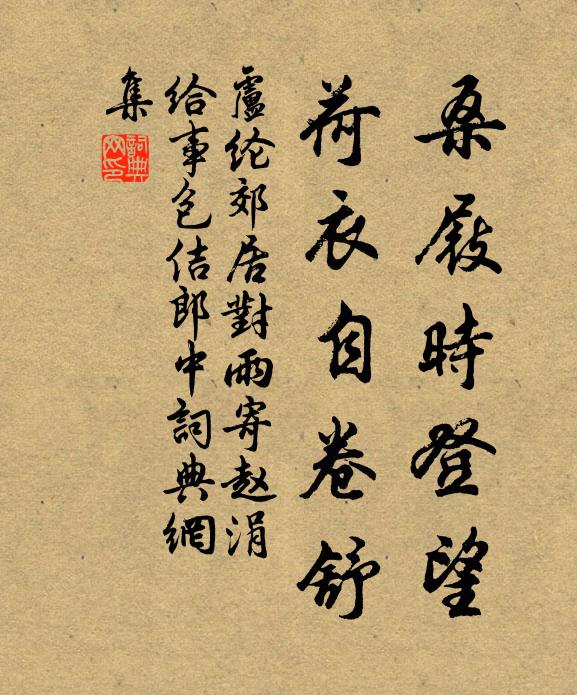 桑屐時登望
荷衣自卷舒
盧纶郊居對雨寄赵涓
给事包佶郎中詞典網
集
詞典網印